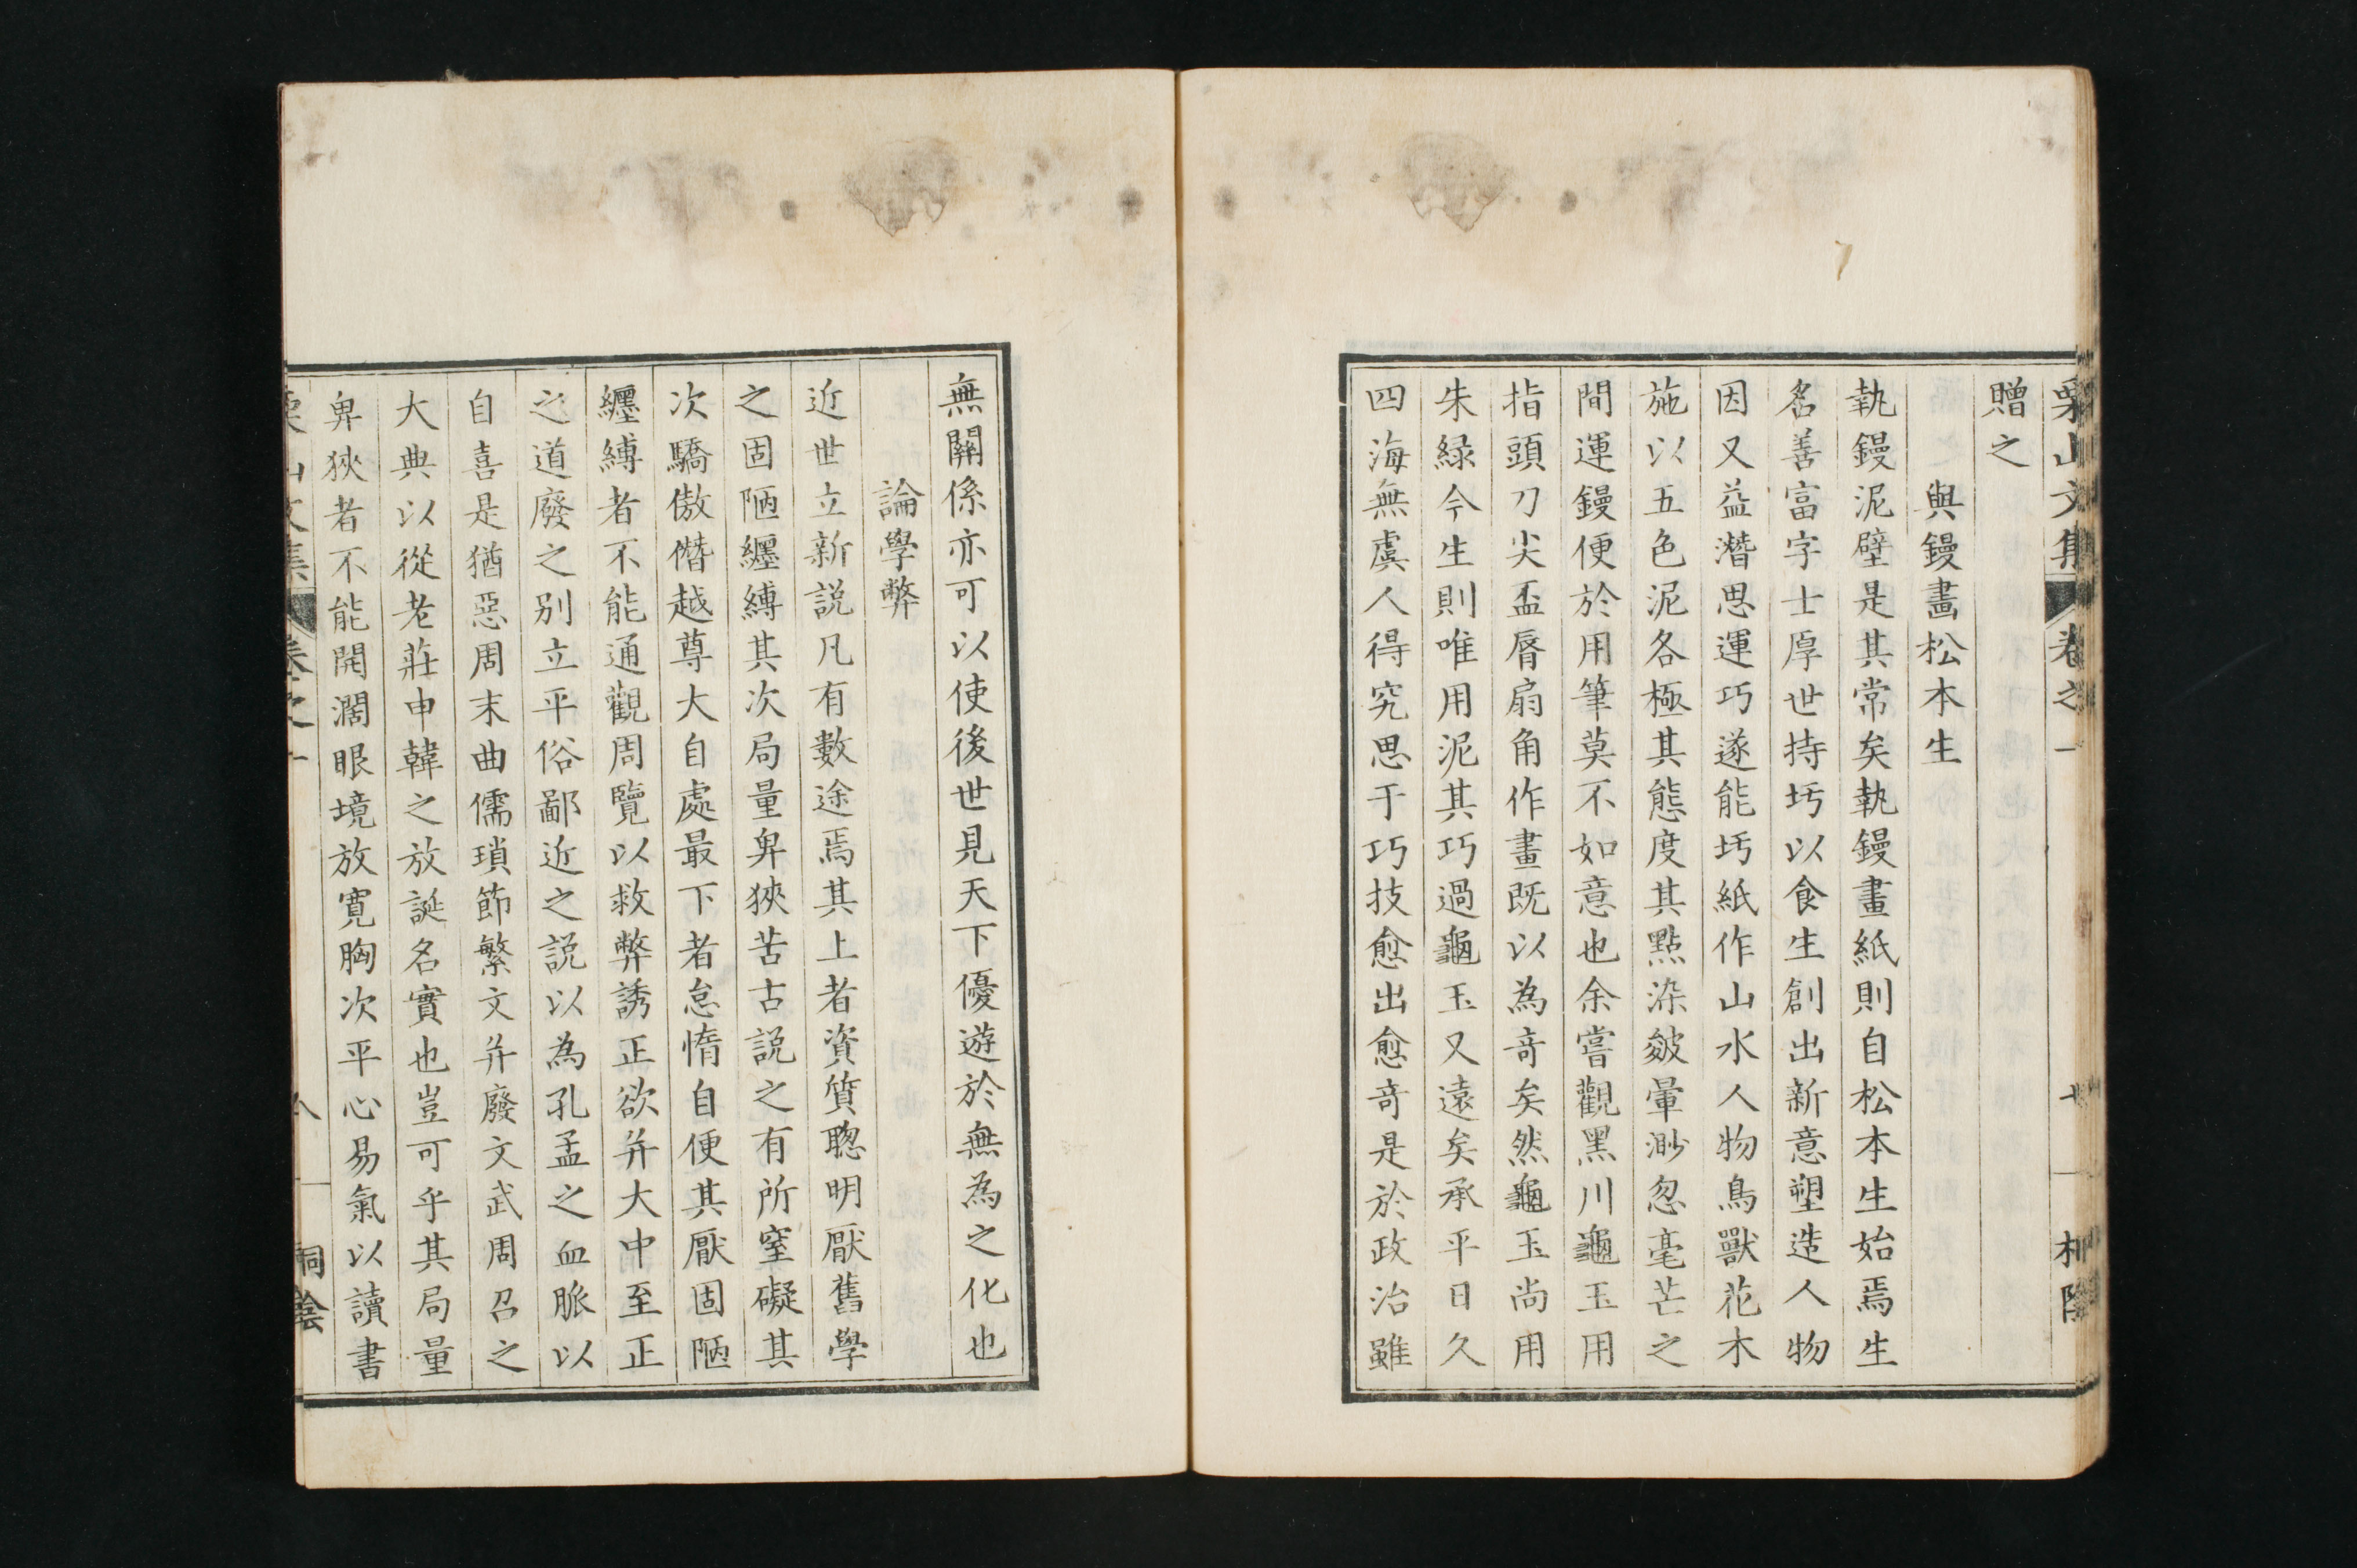 栗山文集 卷之一 七 栒陰
贈之
與鏝畵松本生
執鏝泥壁是其常矣執鏝畫紙則自松本生始焉生
名善富字士厚世持圬以食生創出新意塑造人物
因又益潛思運巧遂能圬紙作山水人物鳥獸花木
施以五色泥各極其態度其點染皴暈渺忽毫芒之
間運鏝便於用筆莫不如意也余嘗觀黑川龜玉用
指頭刀尖盃脣扇角作畫既以為竒矣然龜玉尚用
朱緑今生則唯用泥其巧過龜玉又遠矣承平日久
四海無虞人得究思于巧技愈出愈竒是於政治雖
無關係亦可以使後世見天下優遊於無為之化也
論學弊
近世立新説凡有數途焉其上者資質聰明厭舊學
之固陋纒縛其次局量卑狹苦古説之有所窒礙其
次驕傲僭越尊大自處最下者怠惰自便其厭固陋
纒縛者不能通觀周覽以救弊誘正欲并大中至正
之道廢之别立平俗鄙近之説以為孔孟之血脈以
自喜是猶惡周末曲儒瑣節繁文并廢文武周召之
大典以從老莊申韓之放誕名實也豈可乎其局量
卑狹者不能開濶眼境放寛胸次平心易氣以讀書
文集 卷之一 八